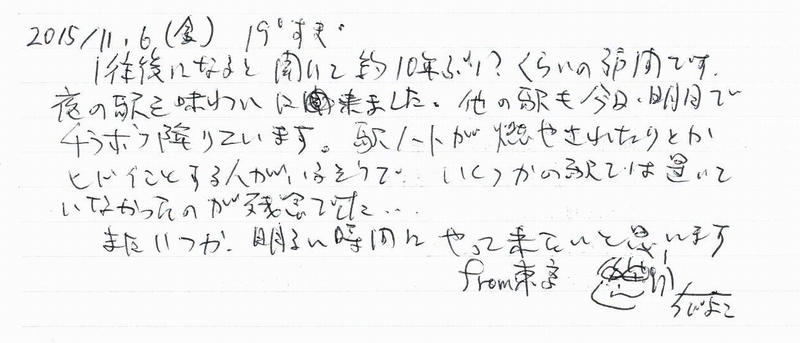 2015/11.6(金) 19°すぎ.
1往後になると聞いて約10年ぶり?くらいの訪問です.
夜の駅を味わいに来ました。他の駅も今日・明日で
チラホラ降りています。駅ノートが燃やされたりとか
ヒドイことする人がいるそうで いくつかの駅では置いて
いなかったのが残念でした...
またいつか、明るい時間にやって来たいと思います
from東京